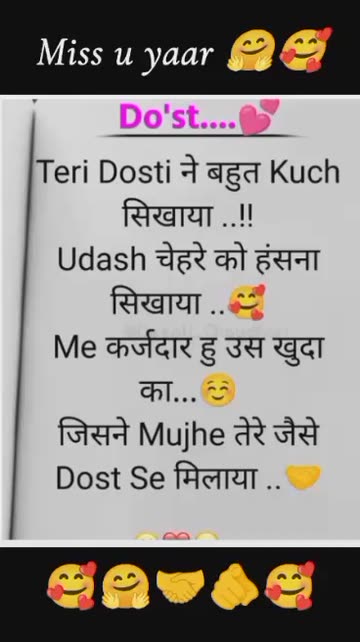 Miss u yaar 🤗🥰
Do'st....💕
Teri Dosti ने बहुत Kuch
सिखाया ..!!
Udash चेहरे को हंसना
सिखाया ..🥰
Me कर्जदार हु उस खुदा
का...☺️
जिसने Mujhe तेरे जैसे
Dost Se मिलाया ..🤝